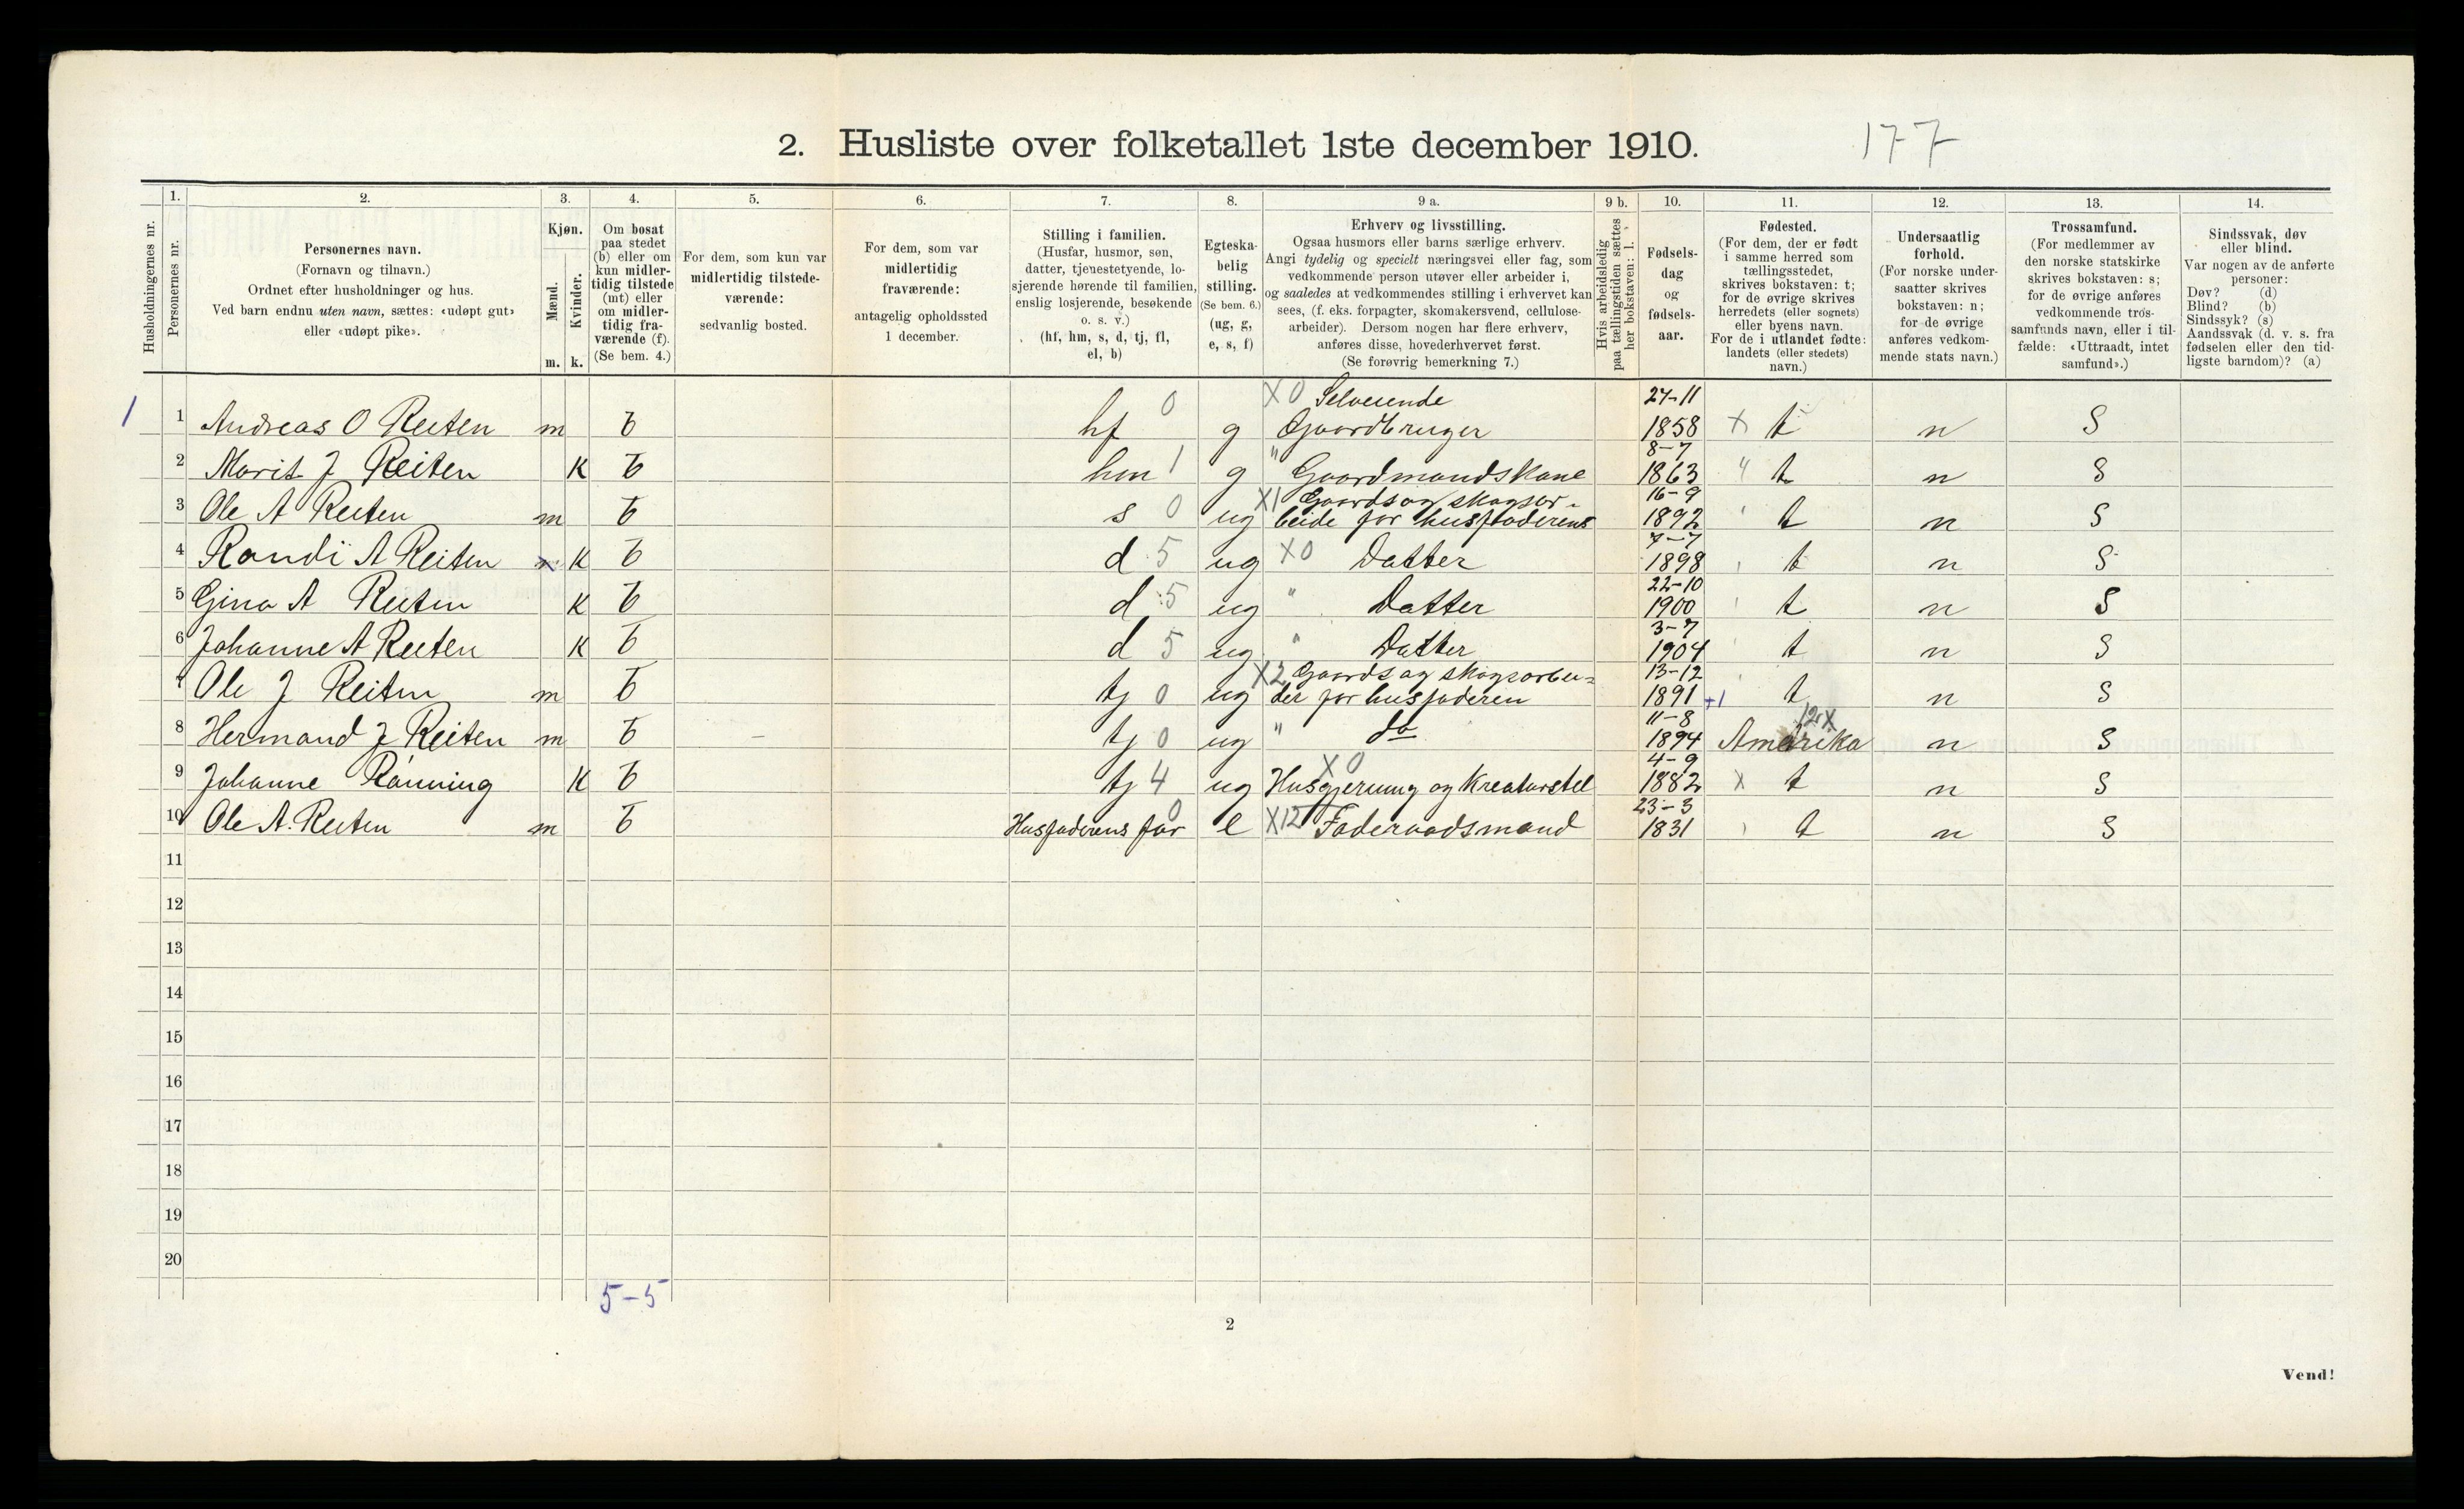 2. Husliste over folketallet 1ste december 1910.
177
1. 2. 3. 4. 5. 6. 7. 8. 9 a. 9 b. 10. 11. 12. 13. 14.
Husholdningernes nr.
Personernes nr.
Personernes navn.
(Fornavn og tilnavn.)
Ordnet efter husholdninger og hus.
Ved barn endnu uten navn, sættes: «udøpt gut»
eller «udøpt pike».
Kjøn.
Mænd.
Kvinder.
m. k.
Om bosat
paa stedet
(b) eller om
kun midler-
tidig tilstede
(mt) eller
om midler-
tidig fra-
værende (f).
(Se bem. 4.)
For dem, som kun var
midlertidig tilstede-
værende:
sedvanlig bosted.
For dem, som var
midlertidig
fraværende:
antagelig opholdssted
1 december.
Stilling i familien.
(Husfar, husmor, søn,
datter, tjenestetyende, lo-
sjerende hørende til familien,
enslig losjerende, besøkende
o. s. v.)
(hf, hm, s, d, tj, fl,
el, b)
Egteska-
belig
stilling.
(Se bem. 6.)
(ug, g,
e, s, f)
Erhverv og livsstilling.
Ogsaa husmors eller barns særlige erhverv.
Angi tydelig og specielt næringsvei eller fag, som
vedkommende person utøver eller arbeider i,
og saaledes at vedkommendes stilling i erhvervet kan
sees, (f. eks. forpagter, skomakersvend, cellulose-
arbeider). Dersom nogen har flere erhverv,
anføres disse, hovederhvervet først.
(Se forøvrig bemerkning 7.)
Hvis arbeidsledig
paa tællingstiden sættes
her bokstaven: l.
Fødsels-
dag
og
fødsels-
aar.
Fødested.
(For dem, der er født
i samme herred som
tællingsstedet,
skrives bokstaven: t;
for de øvrige skrives
herredets (eller sognets)
eller byens navn.
For de i utlandet fødte:
landets (eller stedets)
navn.)
Undersaatlig
forhold.
(For norske under-
saatter skrives
bokstaven: n;
for de øvrige
anføres vedkom-
mende stats navn.)
Trossamfund.
(For medlemmer av
den norske statskirke
skrives bokstaven: s;
for de øvrige anføres
vedkommende tros-
samfunds navn, eller i til-
fælde: «Uttraadt, intet
samfund».)
Sindssvak, døv
eller blind.
Var nogen av de anførte
personer:
Døv? (d)
Blind? (b)
Sindssyk? (s)
Aandssvak (d. v. s. fra
fødselen eller den tid-
ligste barndom)? (a)
X0 Selveiende 27-11
1 1 Andreas O Reiten m b hf 0 g Gaardbruger 1858 X t n S
8-7
2 Marit J Reiten K b hm 1 g " Gaardmandskone 1863 " t n S
X1 Gaards og skogsar- 16-9
3 Ole A Reiten m b s 0 ug beide for husfaderens 1892 t n S
7-7
4 Randi A Reiten K b d 5 ug X0 Datter 1898 t n S
22-10
5 Gina A Reiten K b d 5 ug " Datter 1900 t n S
3-7
6 Johanne A Reiten K b d 5 ug " Datter 1904 t n S
X2 Gaards og skogsarbei= 13-12
Ole J Reiten m b tj 0 ug der for husfaderen 1891 +1 t n S
11-8
8 Hermand J Reiten m b - tj 0 ug " do 1894 Amerika n S
X0 4-9
9 Johanne Rønning K b tj 4 ug Husgjerning og Kreaturstel 1882 X t n S
23-3
10 Ole A. Reiten m b Husfaderens far 0 e X12 Foderaadsmand 1831 t n S
11
12
13
14
15
16
17
18
19
20
5-5
2
Vend!